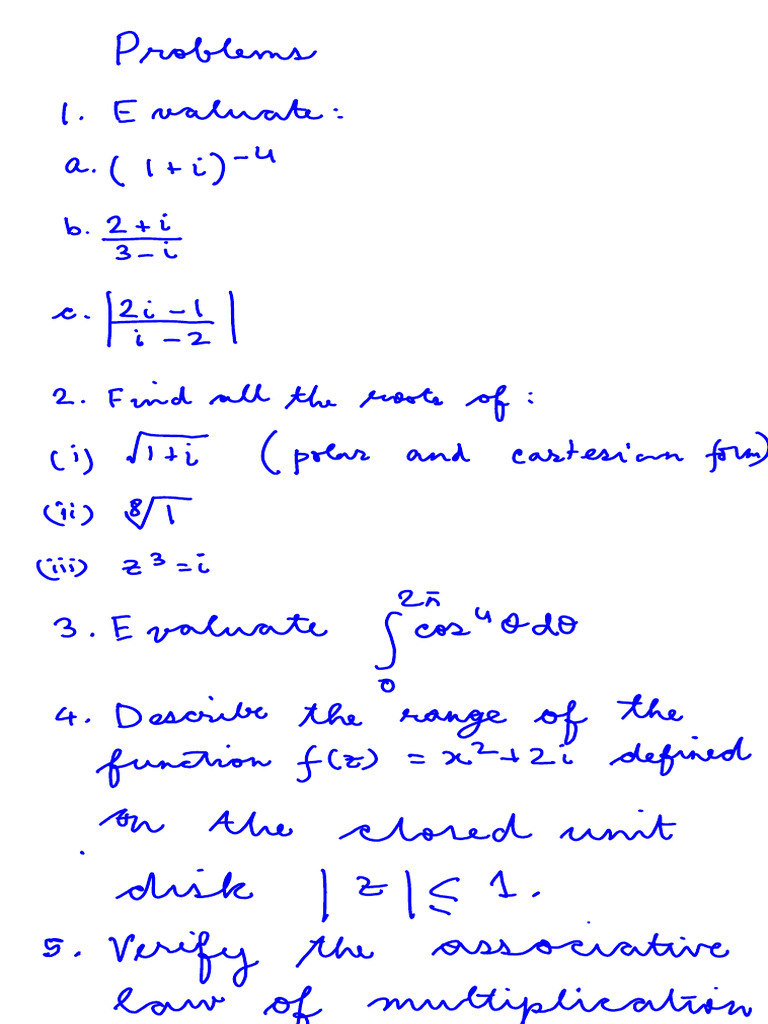 Problems
1. Evaluate:
a. (1+i)^-4
b. (2+i)/(3-i)
c. |(2i-1)/(i-2)|
2. Find all the roots of:
(i) √(1+i) (polar and cartesian form)
(ii) ⁸√1
(iii) z³=i
3. Evaluate ∫₀^2π cos⁴θdθ
4. Describe the range of the
function f(z) = x²+2i defined
on the closed unit
disk |z| ≤ 1.
5. Verify the associative
law of multiplication